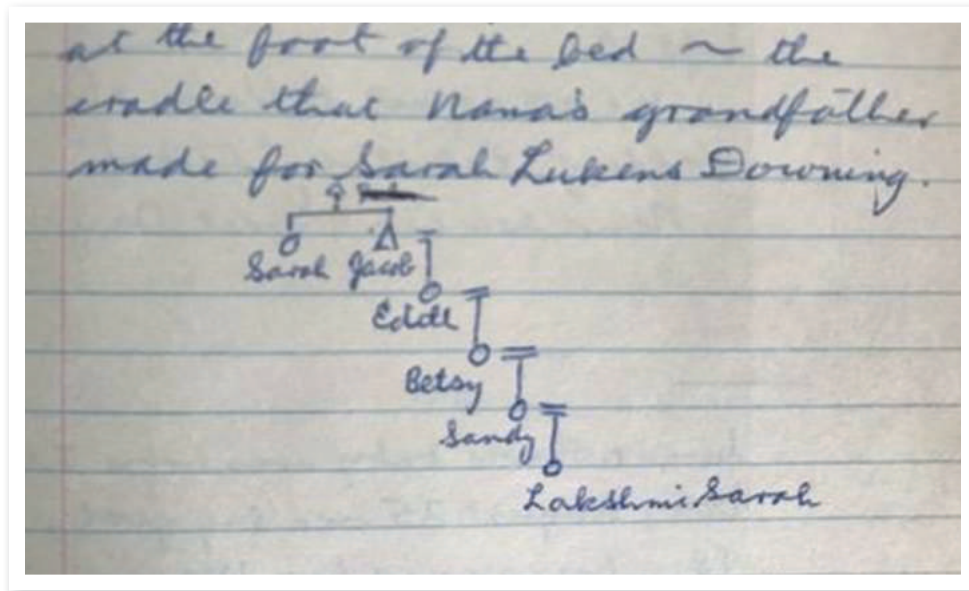 at the foot of the bed ~ the
cradle that Nana's grandfather
made for Sarah Lukens Downing.
Sarah Jacob
Edith
Betsy
Sandy
Lakshmi Sarah